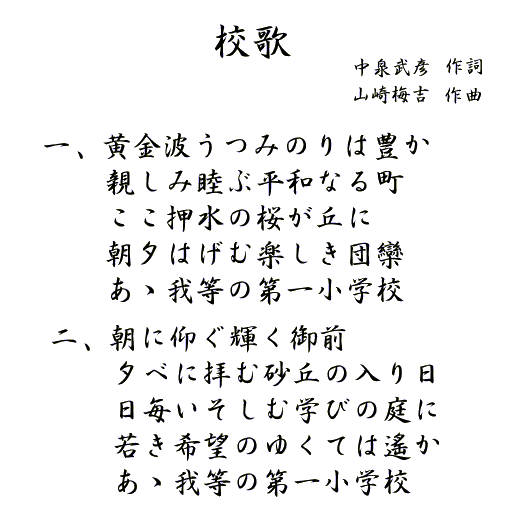 校歌
中泉武彦 作詞
山崎梅吉 作曲
一、黄金波うつみのりは豊か
親しみ睦ぶ平和なる町
ここ押水の桜が丘に
朝夕はげむ楽しき団欒
あゝ我等の第一小学校
二、朝に仰ぐ輝く御前
夕べに拝む砂丘の入り日
日毎いそしむ学びの庭に
若き希望のゆくては遙か
あゝ我等の第一小学校